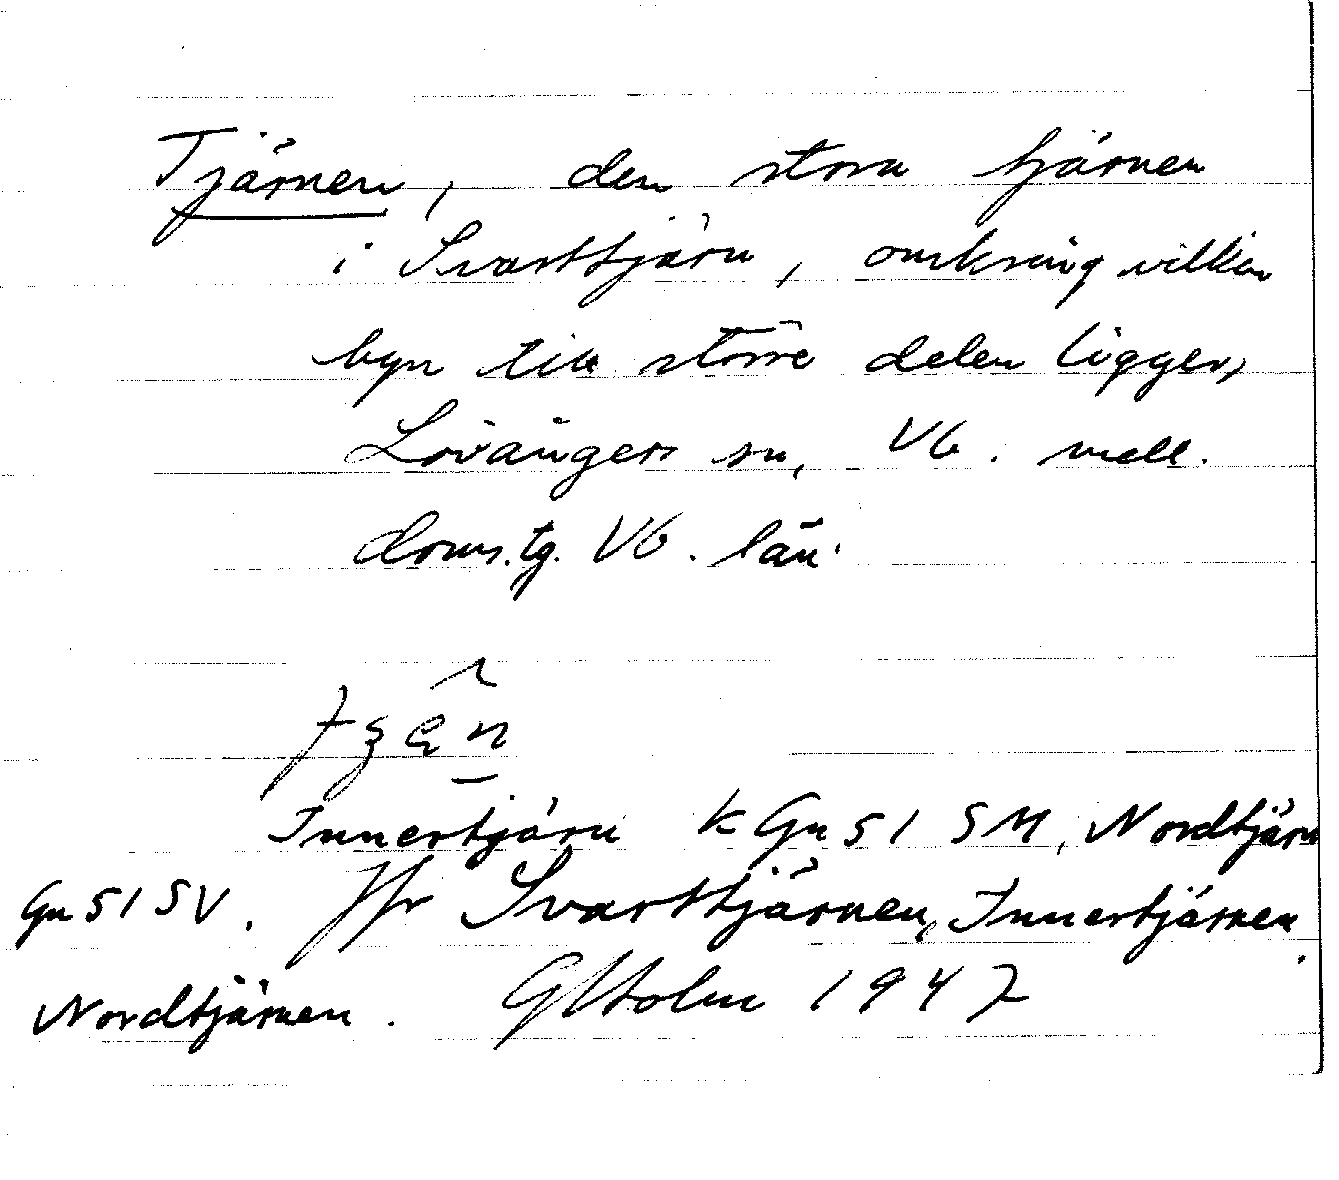 Tjärnen, den stora tjärnen
i Svarttjärn, omkring vilken
byn till större delen ligger,
Lövångers sn, Vb. mell.
doms.tg. Vb. län.
Innertjärn k Gn 51 SM, Nordtjärn
Gn 51 SV. Jfr Svarttjärnen, Innertjärnen,
Nordtjärnen. GHolm 1947